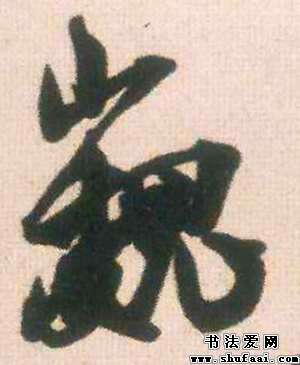 巍
书法爱网
www.shufaai.com